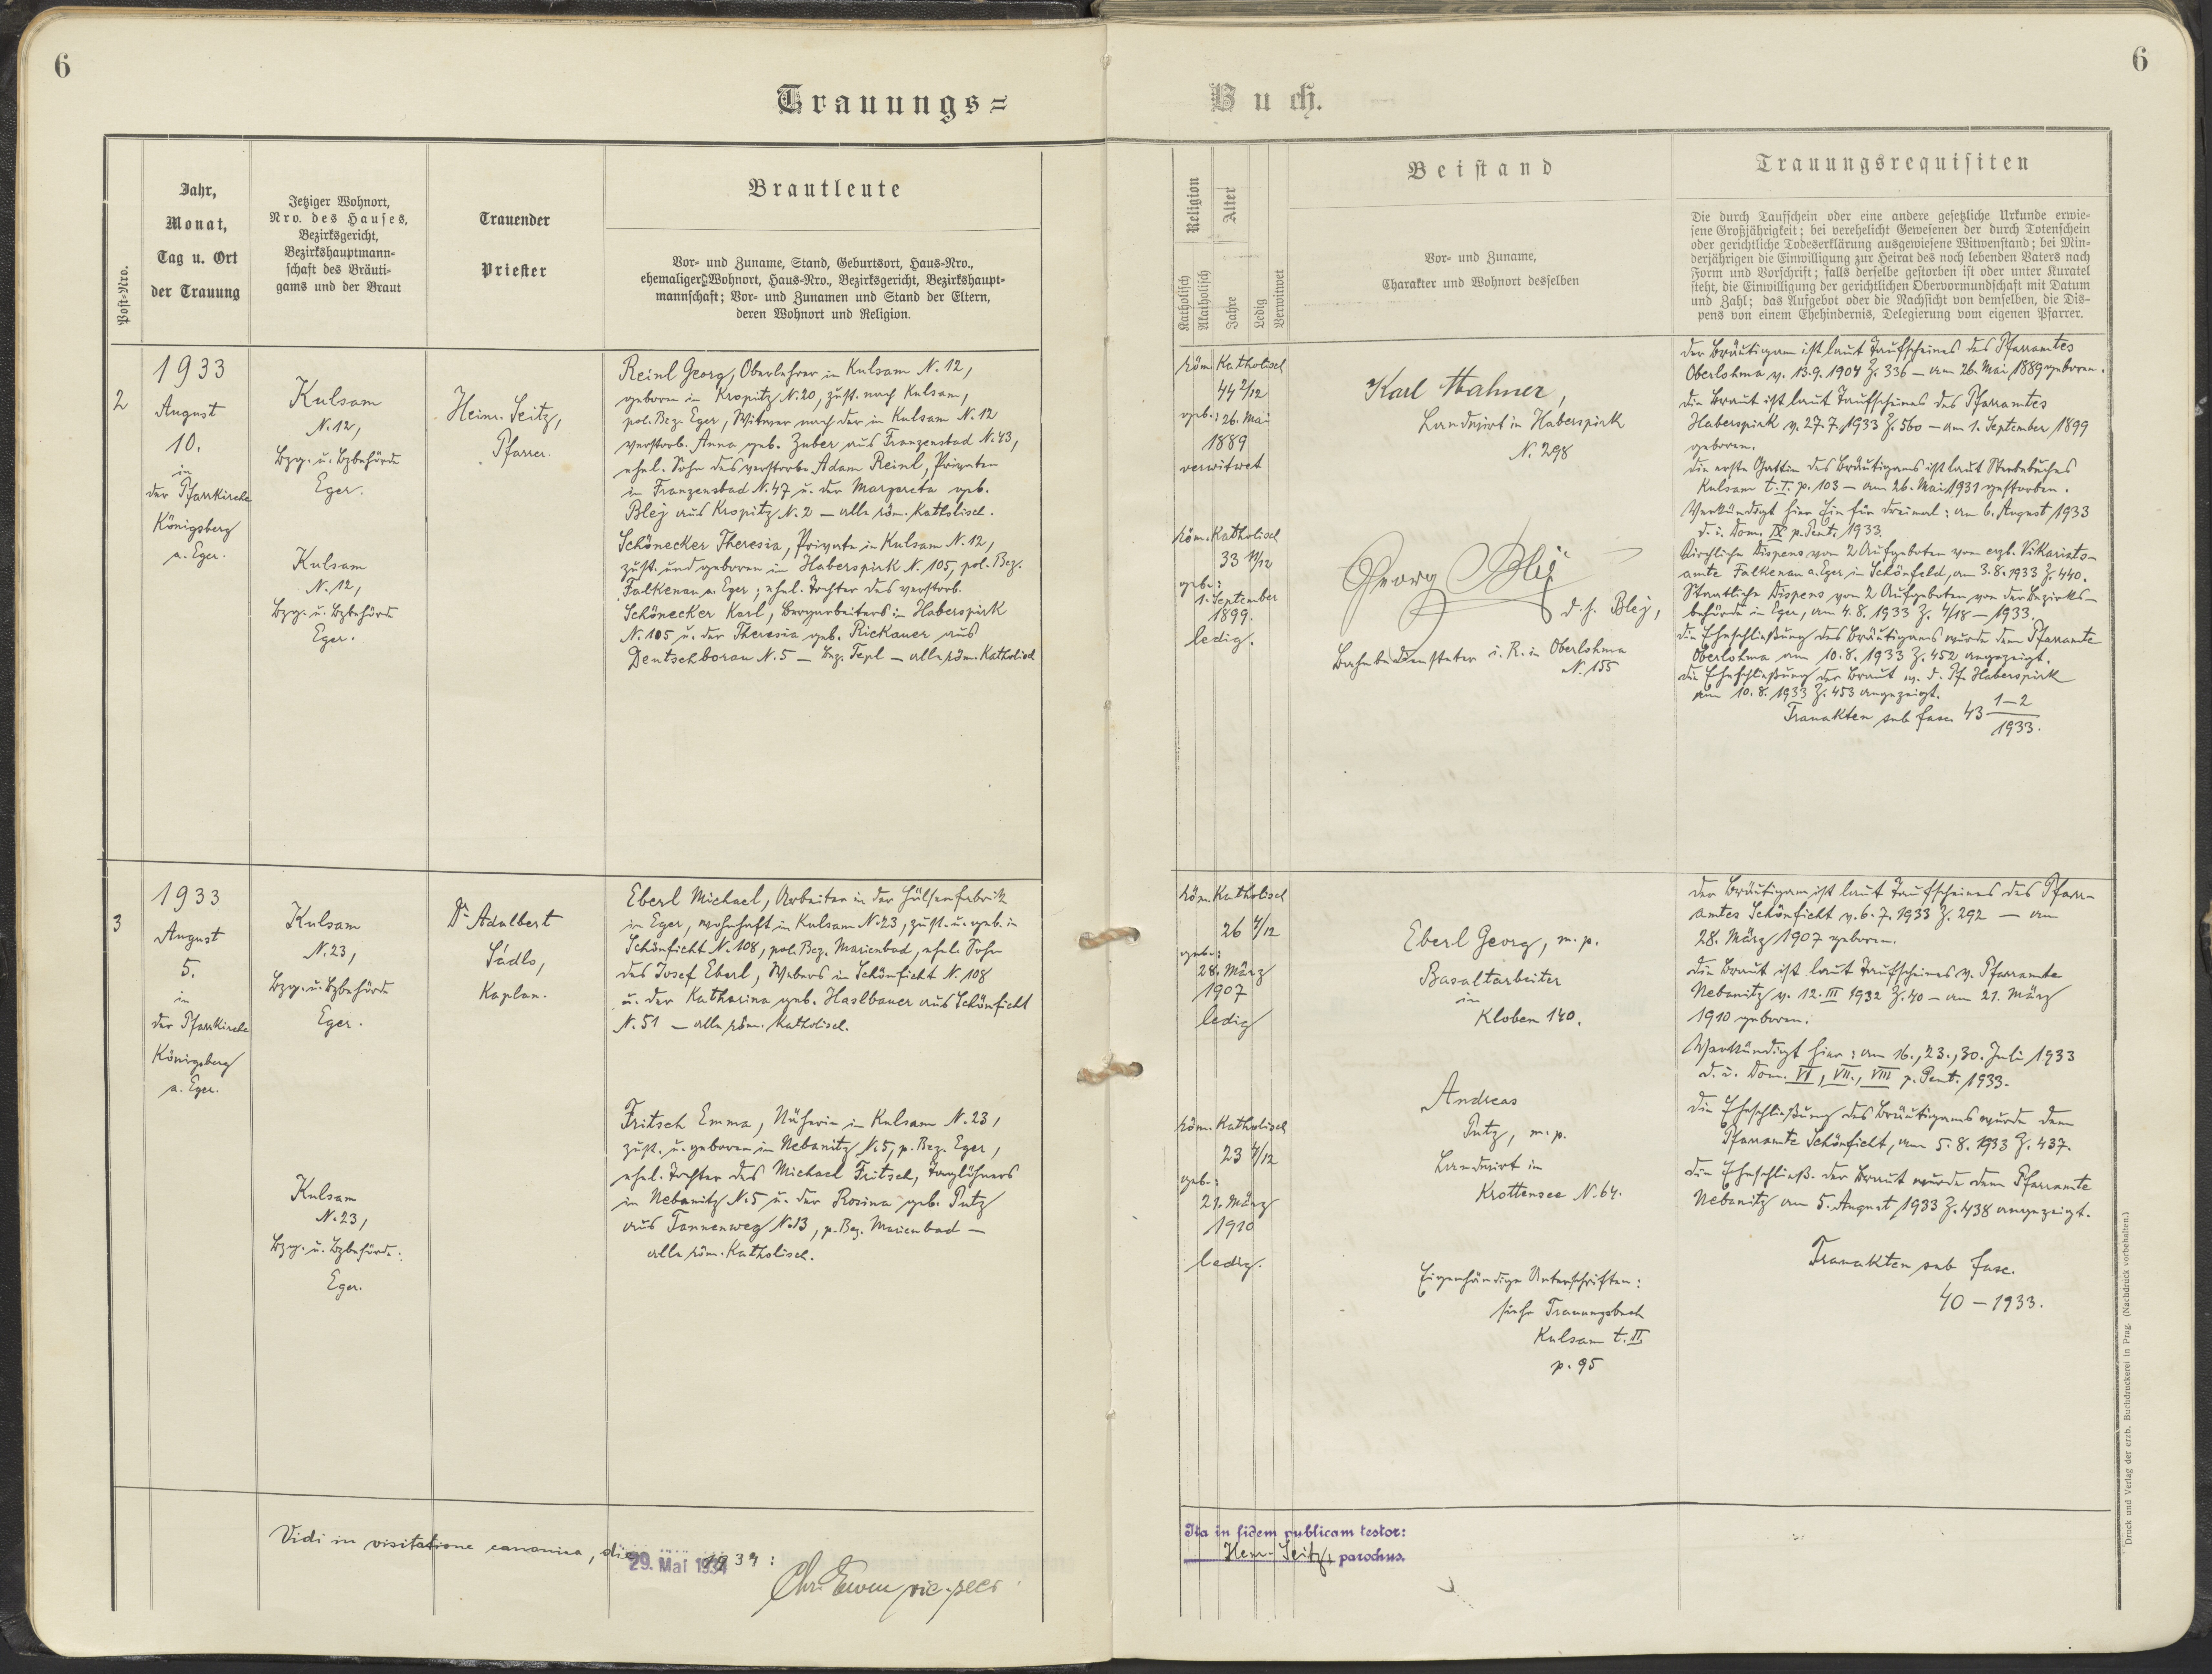 6
6
Trauungs=
Buch.
Post=Nro.
Jahr,
Monat,
Tag u. Ort
der Trauung
Jetziger Wohnort,
Nro. des Hauses,
Bezirksgericht,
Bezirkshauptmann=
schaft des Bräuti=
gams und der Braut
Trauender
Priester
Brautleute
Vor= und Zuname, Stand, Geburtsort, Haus=Nro.,
ehemaliger Wohnort, Haus=Nro., Bezirksgericht, Bezirkshaupt=
mannschaft; Vor= und Zunamen und Stand der Eltern,
deren Wohnort und Religion.
Religion
Katholisch
Akatholisch
Alter
Jahre
Ledig
Verwitwet
Beistand
Vor= und Zuname,
Charakter und Wohnort desselben
Trauungsrequisiten
Die durch Taufschein oder eine andere gesetzliche Urkunde erwie=
sene Großjährigkeit; bei verehelicht Gewesenen der durch Totenschein
oder gerichtliche Todeserklärung ausgewiesene Witwenstand; bei Min=
derjährigen die Einwilligung zur Heirat des noch lebenden Vaters nach
Form und Vorschrift; falls derselbe gestorben ist oder unter Kuratel
steht, die Einwilligung der gerichtlichen Obervormundschaft mit Datum
und Zahl; das Aufgebot oder die Nachsicht von demselben, die Dis=
pens von einem Ehehindernis, Delegierung vom eigenen Pfarrer.
2
1933
August
10.
in
der Pfarrkirche
Königsberg
a. Eger.
Kulsam
N. 12,
Bzg. u. Bzbehörde
Eger.
Kulsam
N. 12,
Bzg. u. Bzbehörde
Eger.
Heinr. Seitz,
Pfarrer.
Reinl Georg, Oberlehrer in Kulsam N. 12,
geboren in Kropitz N. 20, zust. nach Kulsam,
pol. Bez. Eger, Witwer nach der in Kulsam N. 12
verstorb. Anna geb. Zuber aus Franzensbad N. 43,
ehel. Sohn des verstorb. Adam Reinl, Privaten
in Franzensbad N. 47 u. der Margareta geb.
Blej aus Kropitz N. 2 — alle röm. Katholisch.
Schönecker Theresia, Private in Kulsam N. 12,
zust. und geboren in Haberspirk N. 105, pol. Bez.
Falkenau a. Eger; ehel. Tochter des verstorb.
Schönecker Karl, Bergarbeiters in Haberspirk
N. 105 u. der Theresia geb. Rickauer aus
Deutschborau N. 5 — Bez. Tepl — alle röm. Katholisch
röm. Katholisch
44 2/12
geb.: 26. Mai
1889
verwitwet
röm. Katholisch
33 11/12
geb.:
1. September
1899.
ledig.
Karl Hahner,
Landwirt in Haberspirk
N. 298
Georg Blej
d. h. Blej,
Bahnbediensteter i. R. in Oberlohma
N. 155
Der Bräutigam ist laut Taufscheines des Pfarramtes
Oberlohma v. 13.9.1904 Z. 336 — am 26. Mai 1889 geboren.
Die Braut ist laut Taufscheines des Pfarramtes
Haberspirk v. 27.7.1933 Z. 560 — am 1. September 1899
geboren.
Die erste Gattin des Bräutigams ist laut Sterbebuches
Kulsam t. I. p. 103 — am 26. Mai 1931 gestorben.
Verkündigt hier Ein für dreimal: am 6. August 1933
d. i. Dom. IX p. Pent. 1933.
Kirchliche Dispens von 2 Aufgeboten vom erzb. Vikariats-
amte Falkenau a. Eger in Schönfeld, am 3.8.1933 Z. 440.
Staatliche Dispens von 2 Aufgeboten von der Bezirks-
behörde in Eger, am 4.8.1933 Z. 4/18 — 1933.
Die Eheschließung des Bräutigams wurde dem Pfarramte
Oberlohma am 10.8.1933 Z. 452 angezeigt.
Die Eheschließung der Braut w. d. Pf. Haberspirk
am 10.8.1933 Z. 453 angezeigt.
Trauakten sub fasc. 43 1–2
1933.
3
1933
August
5.
in
der Pfarrkirche
Königsberg
a. Eger.
Kulsam
N. 23,
Bzg. u. Bzbehörde
Eger.
Kulsam
N. 23,
Bzg. u. Bzbehörde:
Eger.
Dr. Adalbert
Sádlo,
Kaplan.
Eberl Michael, Arbeiter in der Hülsenfabrik
in Eger, wohnhaft in Kulsam N. 23, zust. u. geb. in
Schönficht N. 108, pol. Bez. Marienbad, ehel. Sohn
des Josef Eberl, Webers in Schönficht N. 108
u. der Katharina geb. Haslbauer aus Schönficht
N. 51 — alle röm. Katholisch.
Fritsch Emma, Näherin in Kulsam N. 23,
zust. u. geboren in Nebanitz N. 5, p. Bez. Eger,
ehel. Tochter des Michael Fritsch, Taglöhners
in Nebanitz N. 5 u. der Rosina geb. Putz
aus Tannenweg N. 13, p. Bez. Marienbad —
alle röm. Katholisch.
röm. Katholisch
26 4/12
geb.:
28. März
1907
ledig
röm. Katholisch
23 4/12
geb.:
21. März
1910
ledig.
Eberl Georg, m. p.
Basaltarbeiter
in
Kloben 140.
Andreas
Putz, m. p.
Landwirt in
Krottensee N. 64.
Eigenhändige Unterschriften:
siehe Trauungsbuch
Kulsam t. II
p. 95
Der Bräutigam ist laut Taufscheines des Pfarr-
amtes Schönficht v. 6.7.1933 Z. 292 — am
28. März 1907 geboren.
Die Braut ist laut Taufscheines v. Pfarramte
Nebanitz v. 12. III 1932 Z. 40 — am 21. März
1910 geboren.
Verkündigt hier: am 16., 23., 30. Juli 1933
d. i. Dom. VI, VII., VIII p. Pent. 1933.
Die Eheschließung des Bräutigams wurde dem
Pfarramte Schönficht, am 5.8.1933 Z. 437.
Die Eheschließ. der Braut wurde dem Pfarramte
Nebanitz am 5. August 1933 Z. 438 angezeigt.
Trauakten sub fasc.
40 — 1933.
Vidi in visitatione canonica, die
29. Mai 1934
1934:
vic. secr.
Ita in fidem publicam testor:
Henr. Seitz, parochus.
Druck und Verlag der erzb. Buchdruckerei in Prag. (Nachdruck vorbehalten.)